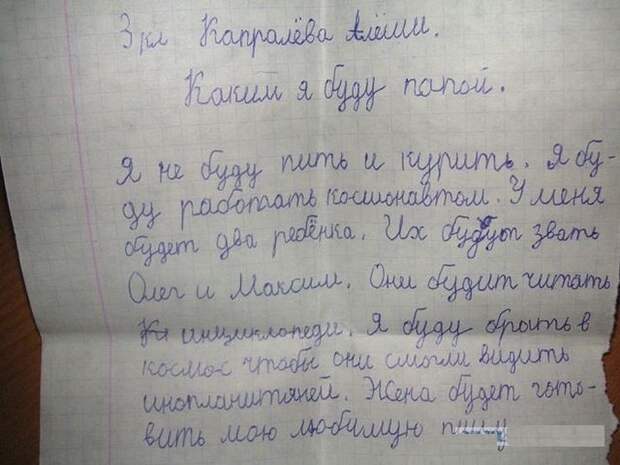 3 кл Капралёва Алёши.
Каким я буду папой.
Я не буду пить и курить. Я бу-
ду работать космонавтом. У меня
будет два ребёнка. Их будут звать
Олег и Максим. Они будит читать
инциклопеди. Я буду брыть в
космос чтобы они смогли видить
инопланитяней. Жена будет гото-
вить мою любимую